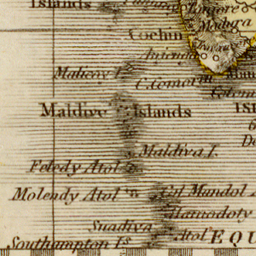 Islands
Tanjore
Madura
Cochin
Travancore
Anjenga
Malicoy I.
C. Comorin
Maldive Islands
Maldiva I.
Feledy Atol
Molendy Atol
Col Mandol
Hamodoty
Suadiva
Atol EQU
Southampton Is